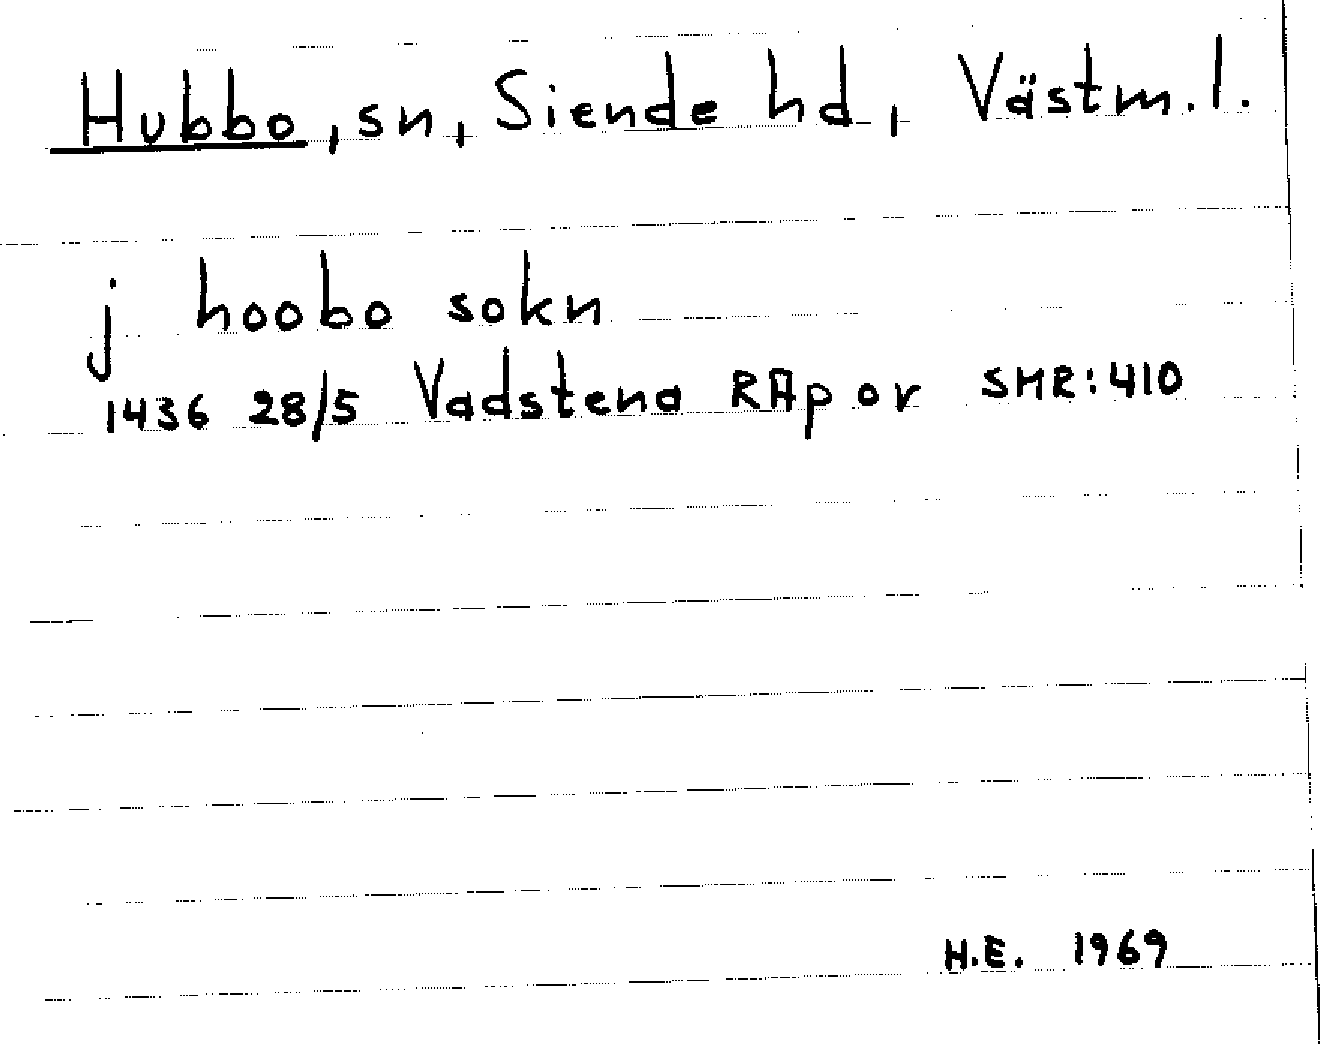 Hubbo, sn, Siende hd, Västm. l.
j hoobo sokn
1436 28/5 Vadstena RAp or SMR:410
H.E. 1969